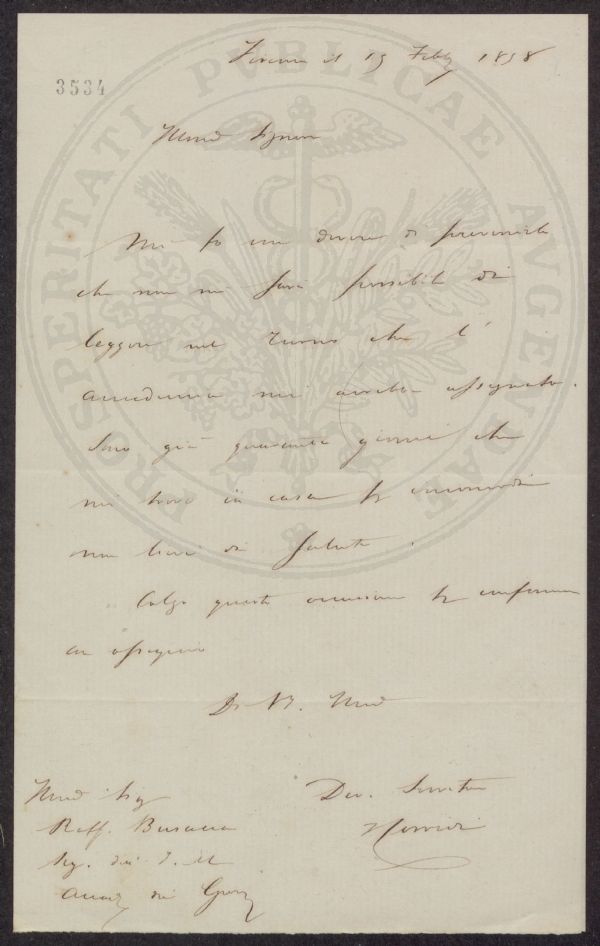 li 19 Febb 1858
3534
Illmo Signore
Mi fo un dovere di prevenirla
che non mi sarà possibile di
leggere nel turno che l'
accademia mi avrebbe assegnato.
Sono già quaranta giorni che
mi trovo in casa per incomodi
non lievi di salute.
Colgo questa occasione per confermarmi
con ossequio
Di V. S. Illma
Illmo Sig
Raff. Busacca
Seg. degli Atti
Accad dei Georg
Dev. Servitore
PROSPERITATI PUBLICAE AUGENDAE